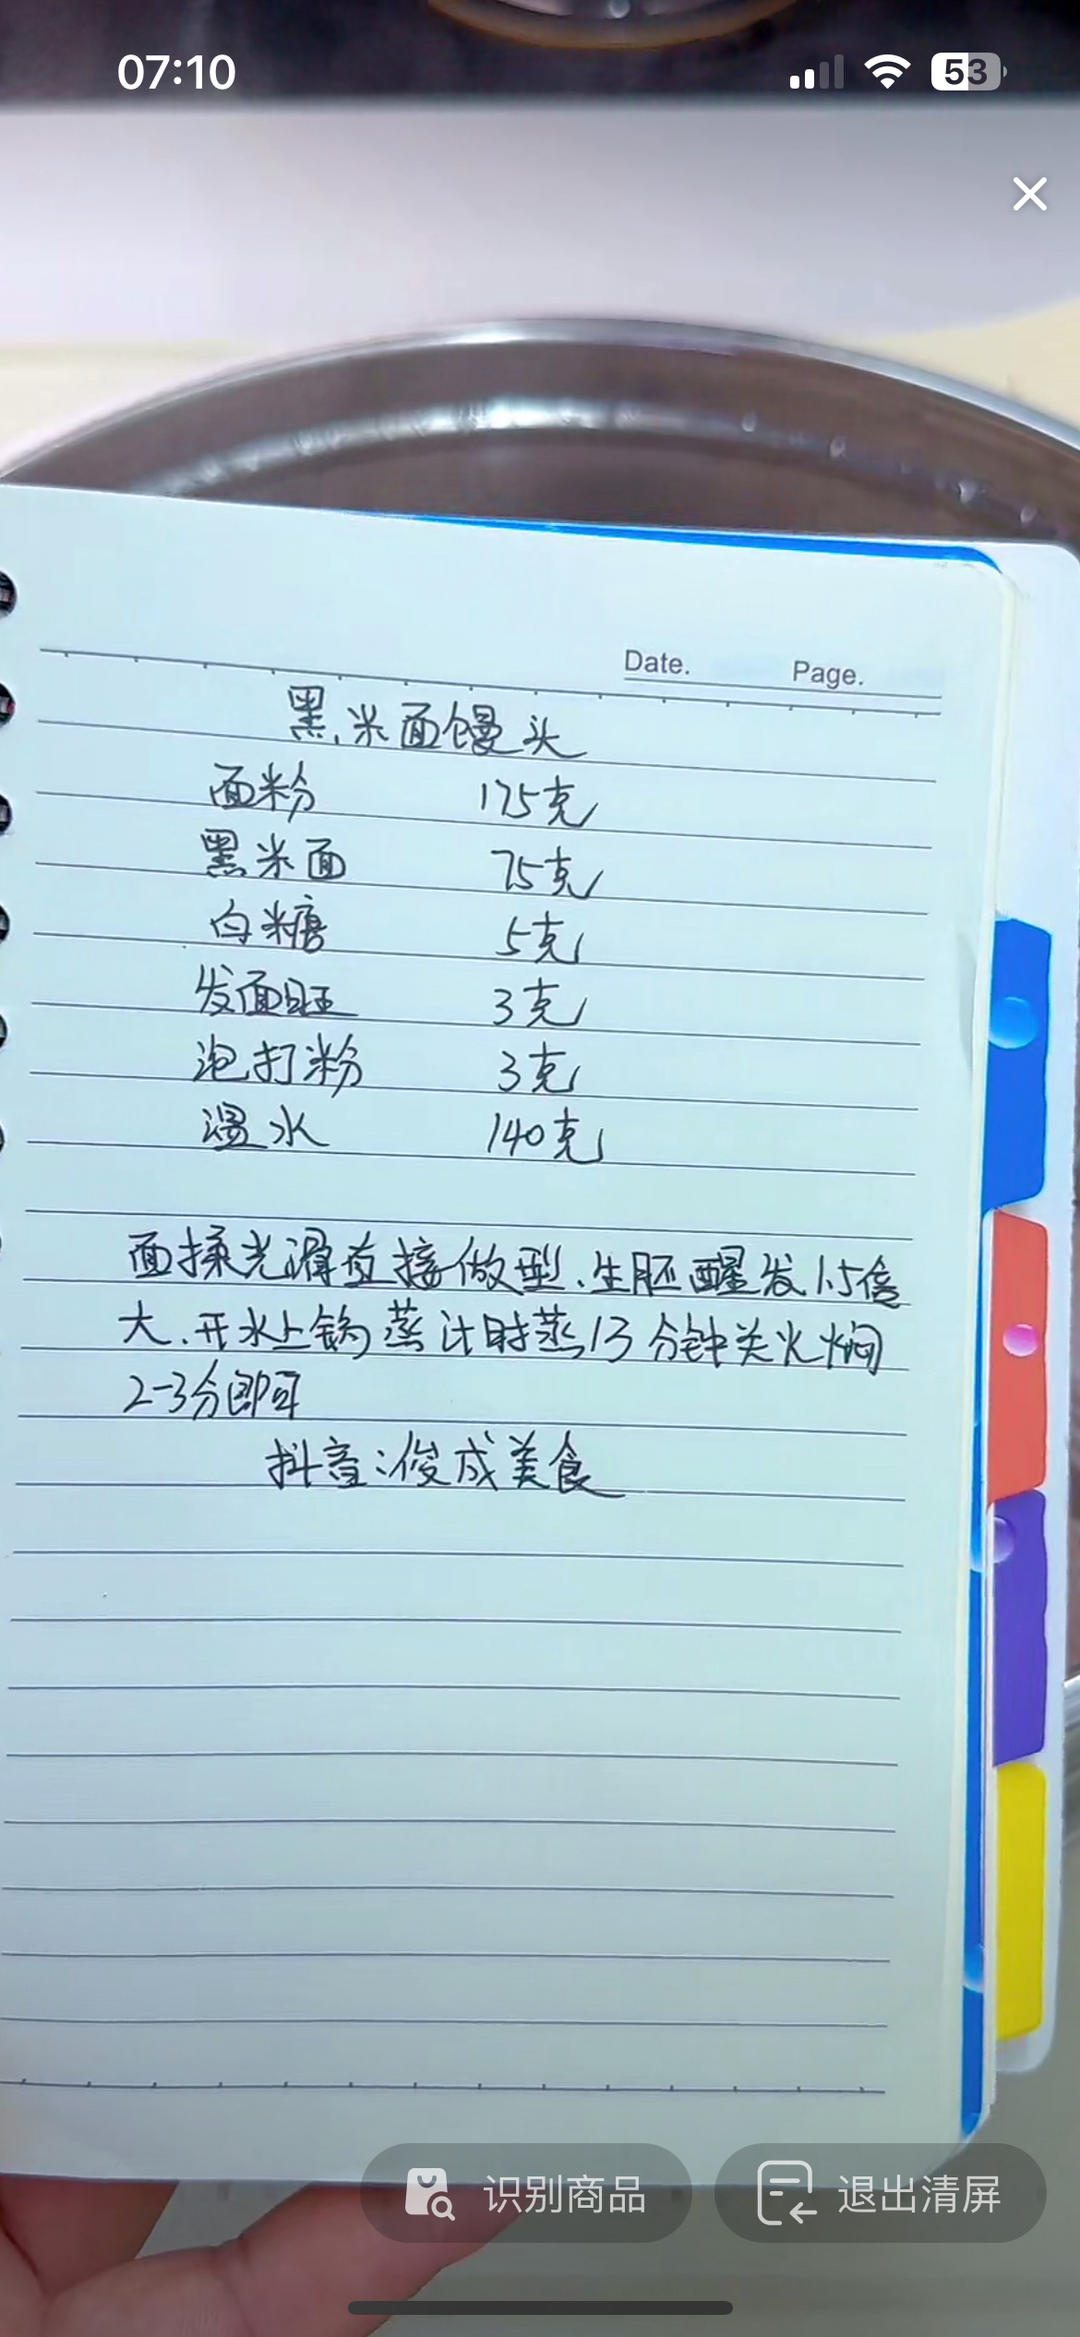 07:10
53
Date. Page.
黑米面馒头
面粉 175克
黑米面 75克
白糖 5克
发面旺 3克
泡打粉 3克
温水 140克
面揉光滑直接做型.生胚醒发1.5倍
大.开水上锅蒸计时蒸13分钟关火焖
2-3分即可
抖音:俊成美食
识别商品 退出清屏